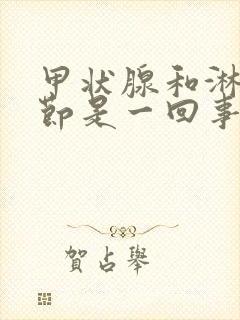 甲状腺和淋
节是一回事
贺占举